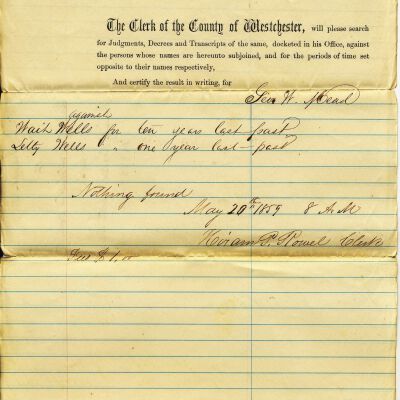 The Clerk of the County of Westchester, will please search
for Judgments, Decrees and Transcripts of the same, docketed in his Office, against
the persons whose names are hereunto subjoined, and for the periods of time set
opposite to their names respectively,
And certify the result in writing, for
Geo W. Mead
against
Wait Wells for ten years last past
Letty Wells " one year last past
Nothing found
May 20th 1859 8 A.M
Hiram P. Rowel Clerk
Fees $